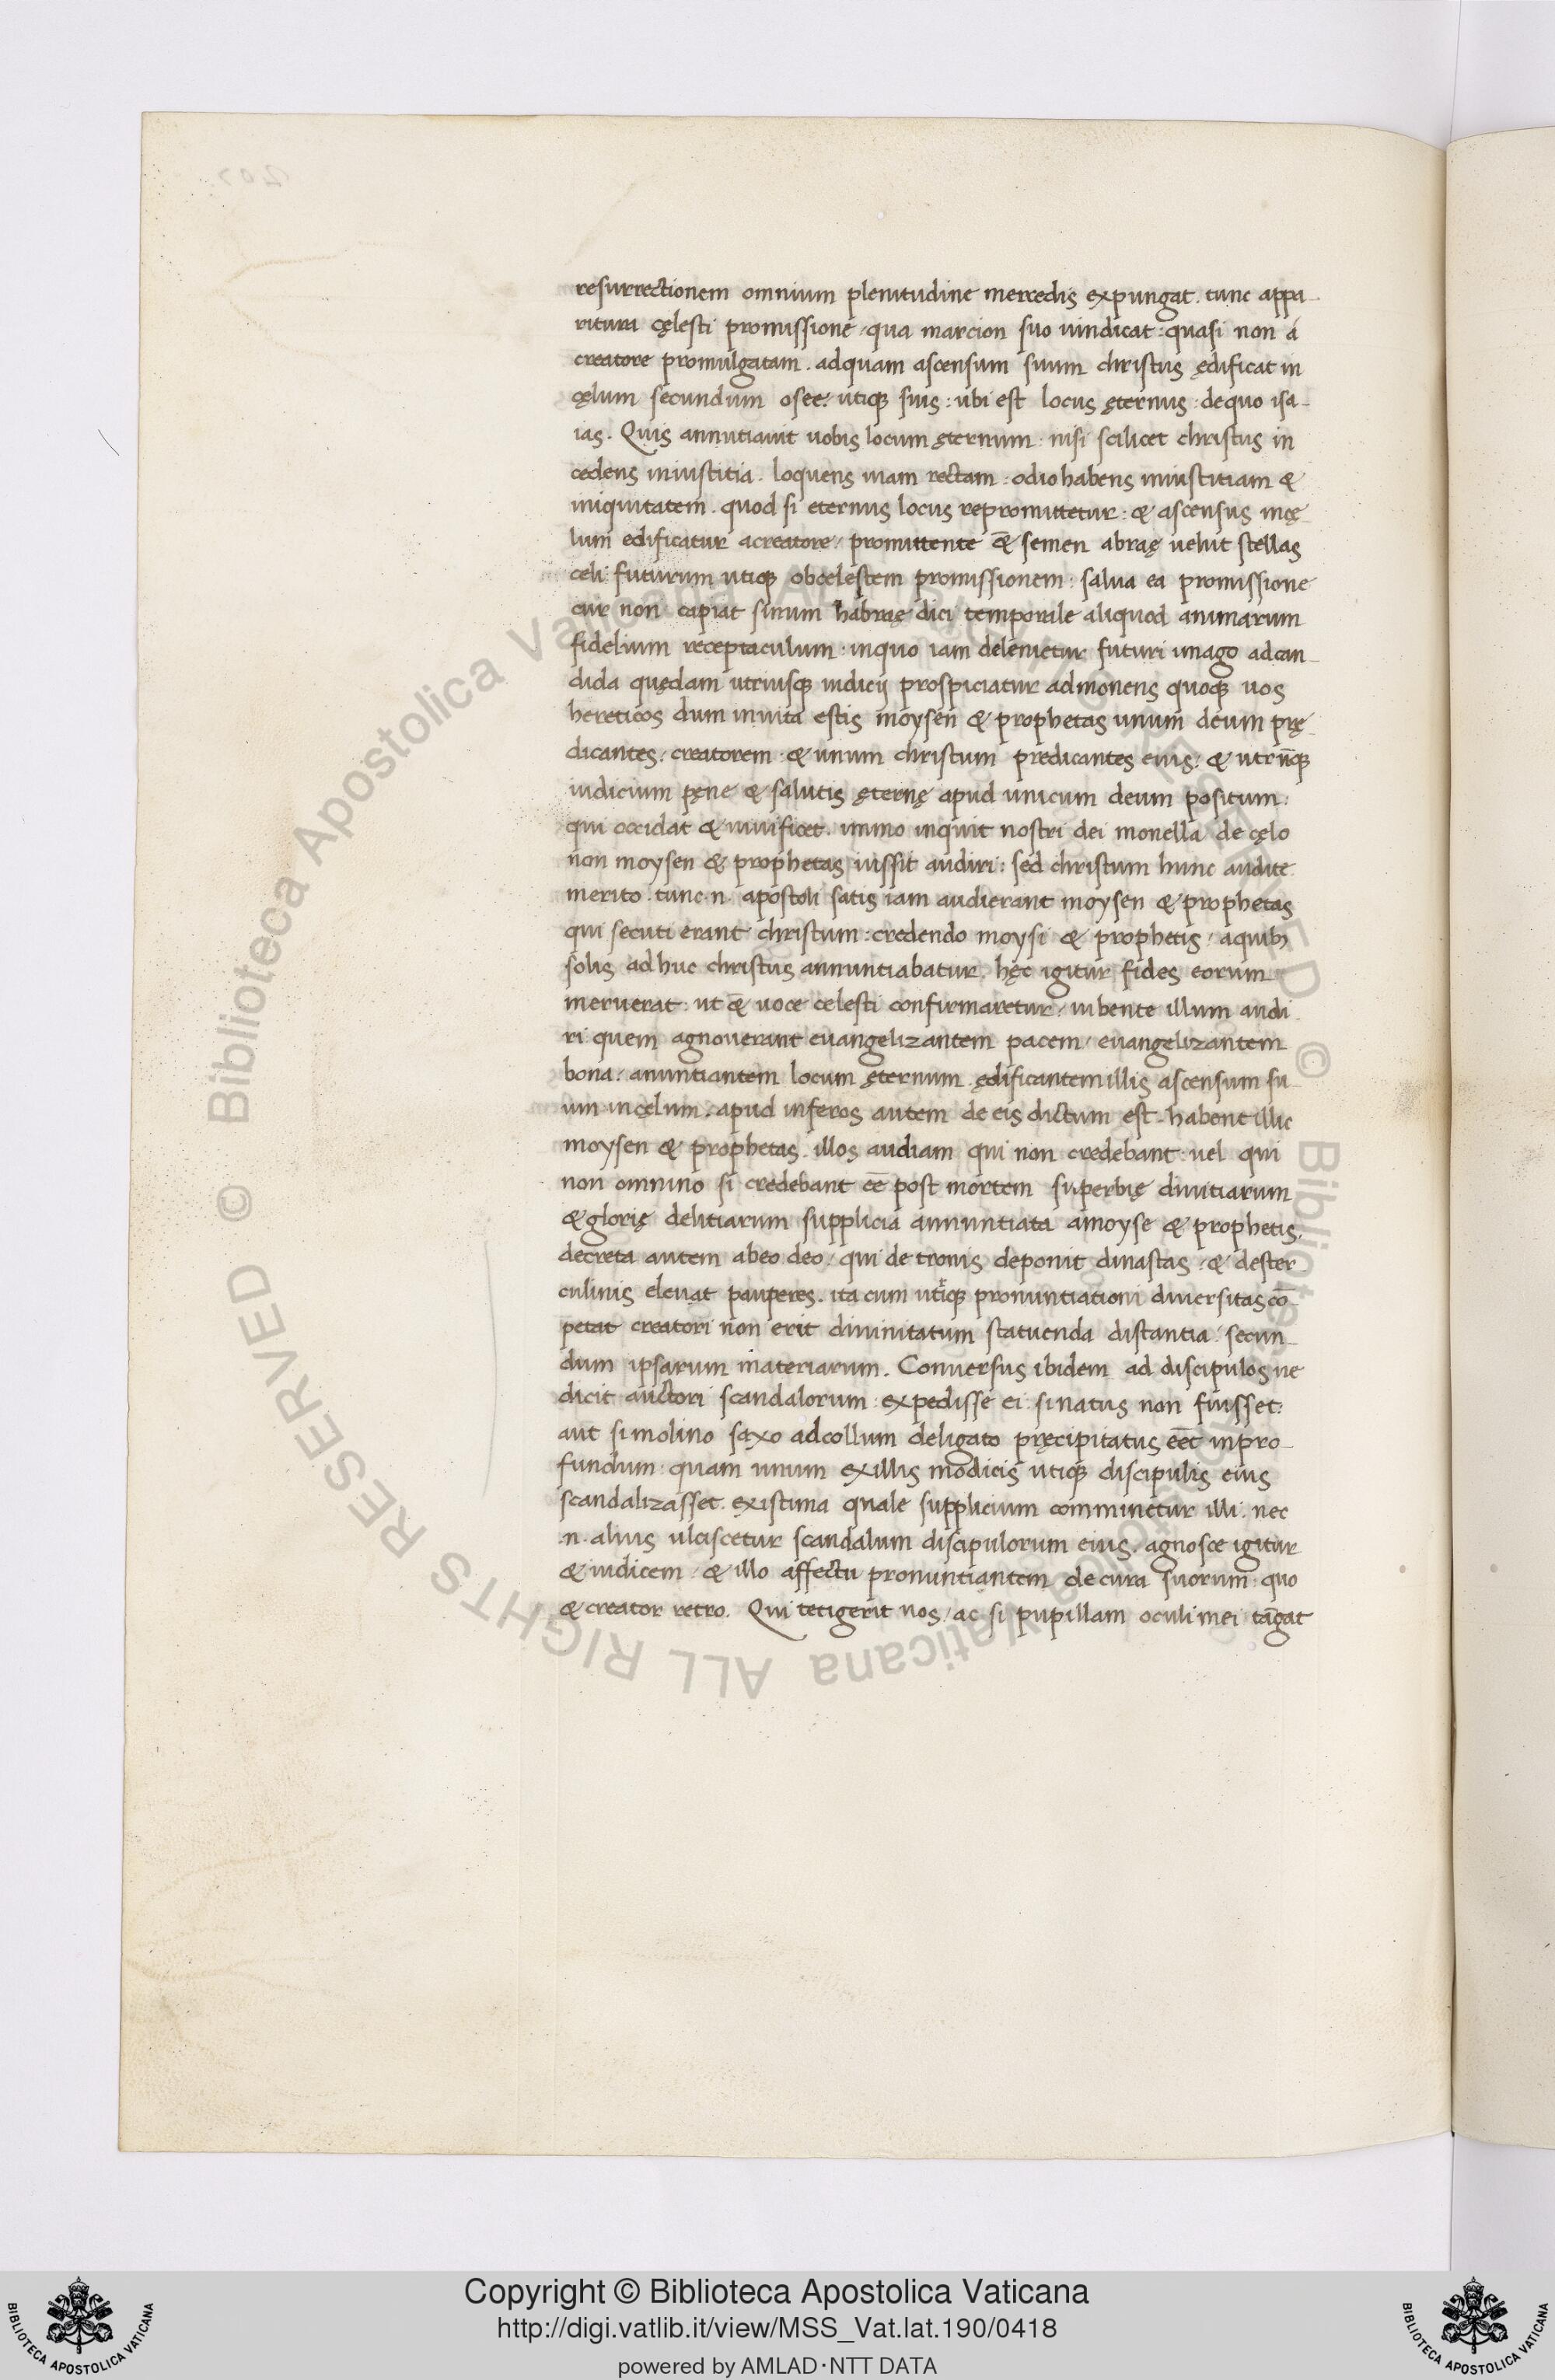 resurrectionem omnium plenitudine mercedis expungat. tunc appa-
ritura cęlesti promissione / qua marcion suo uindicat : quasi non á
creatore promulgatam. adquam ascensum suum christus ędificat in
cęlum secundum osee: utiqꝫ suis : ubi est locus ęternus : dequo isa-
ias. Quis annutiauit uobis locum ęternum : nisi scilicet christus in
cedens iniustitia. loquens uiam rectam : odio habens iniustitiam &
iniquitatem. quod si eternus locus repromittetur : & ascensus incę-
lum edificatur acreatore / promittente &̄ semen abraę uelut stellas
celi futurum utiqꝫ obcelestem promissionem : salua ea promissione
cur non capiat sinum habraę dici temporale aliquod animarum
fidelium receptaculum : inquo iam delenietur futuri imago adcan-
dida quędam utriusqꝫ iudicij prospiciatur admonens quoqꝫ uos
hereticos dum inuita estis moysen & prophetas unum deum prę-
dicantes : creatorem : & unum christum predicantes eius : & utrūqꝫ
iudicium pęne & salutis ęternę apud unicum deum positum :
qui occidat & uiuificet. immo inquit nostri dei monella de cęlo
non moysen & prophetas iussit audiri : sed christum hunc audite
merito. tunc .n. apostoli satis iam audierant moysen & prophetas
qui secuti erant christum : credendo moysi & prophetis / aquibꝫ
solis adhuc christus annuntiabatur. hęc igitur fides eorum
meruerat : ut &̄ uoce celesti confirmaretur / iubente illum audi-
ri quem agnouerant euangelizantem pacem / euangelizantem
bona : anuntiantem locum ęternum ędificantem illis ascensum su-
um incęlum. apud inferos autem de eis dictum est. habent illic
moysen & prophetas. illos audiam qui non credebant : uel qui
non omnino si credebant eē post mortem superbię diuitiarum
& glorię delitiarum supplicia annuntiata amoyse & prophetis.
decreta autem abeo deo / qui de tronis deponit dinastas / & dester-
culinis eleuat pauperes. ita cum utiqꝫ pronuntiationi diuersitas cō-
petat creatori non erit diuinitatum statuenda distantia : secun-
dum ipsarum materiarum. Conuersus ibidem ad discipulos ue
dicit auctori scandalorum : expedisse ei si natus non fuisset :
aut si molino saxo adcollum deligato pręcipitatus eēt inpro-
fundum : quam unum exillis modicis utiqꝫ discipulis eius
scandalizasset. existima quale supplicium comminetur illi : nec
.n. alius ulciscetur scandalum discipulorum eius. agnosce igitur
& iudicem / & illo affectu pronuntiantem decura suorum : quo
& creator retro. Qui tetigerit uos / ac si pupillam oculi mei tāgat
© Biblioteca Apostolica Vaticana ALL RIGHTS RESERVED
Copyright © Biblioteca Apostolica Vaticana
http://digi.vatlib.it/view/MSS_Vat.lat.190/0418
powered by AMLAD·NTT DATA
BIBLIOTECA APOSTOLICA VATICANA
BIBLIOTECA APOSTOLICA VATICANA